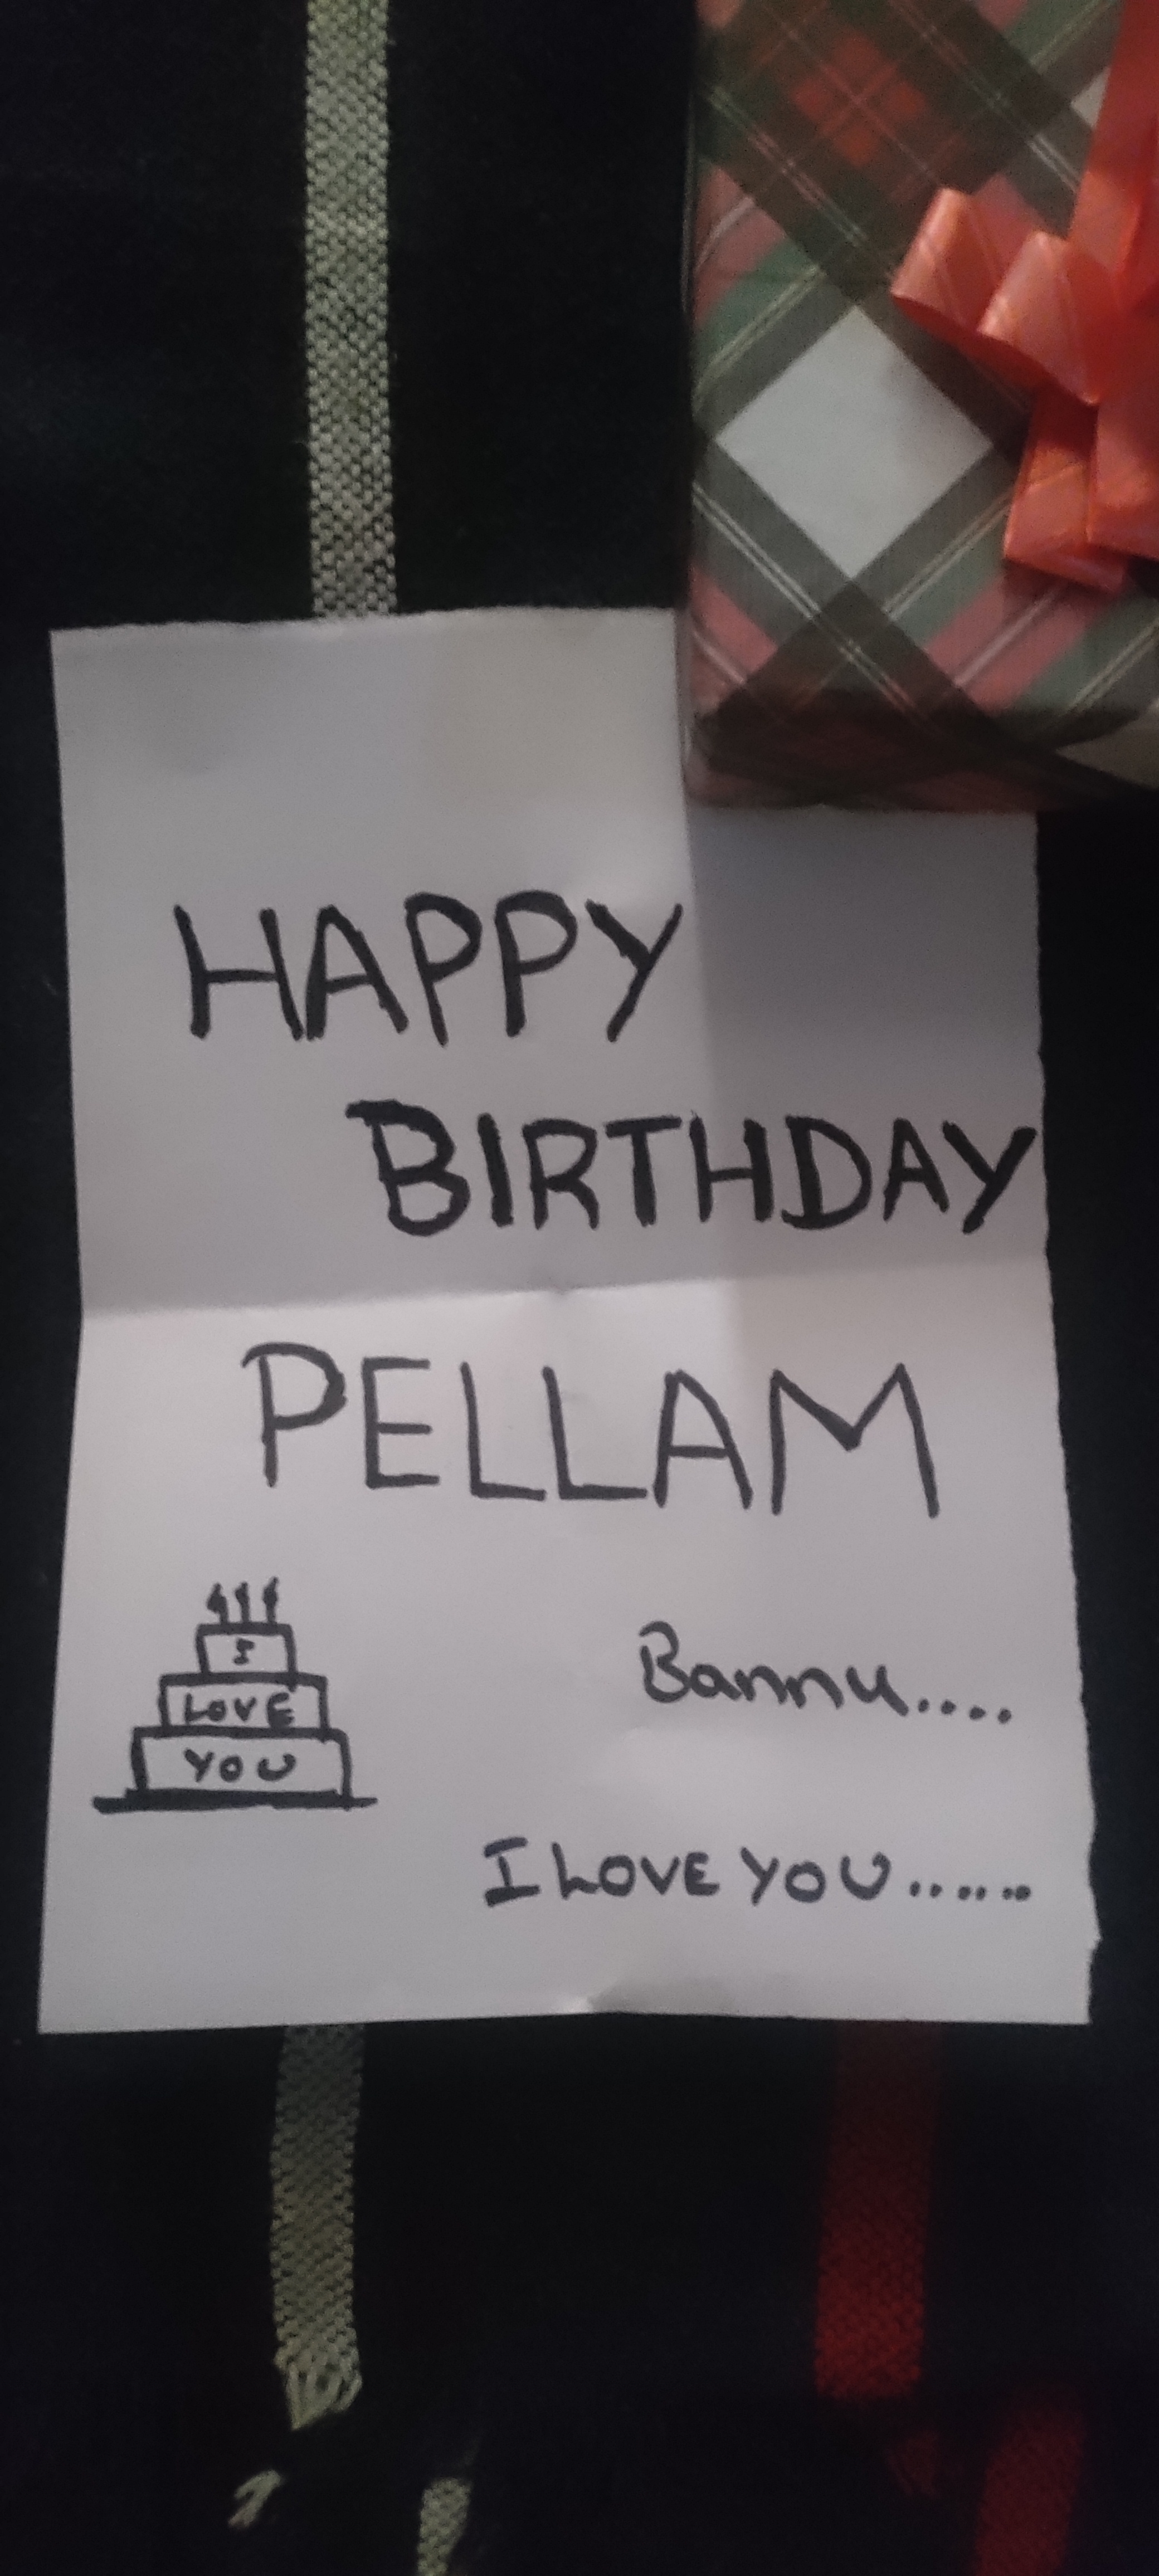 HAPPY
BIRTHDAY
PELLAM
I
LOVE
YOU
Bannu....
I LOVE YOU......